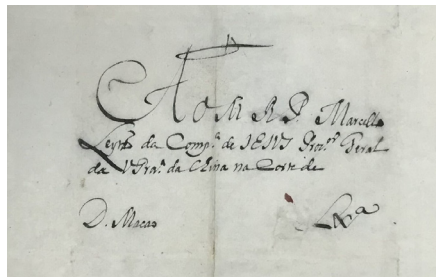 Ao M R P. Marcello
Leytᵒ da Compᵃ de IESVS Procᵒʳ Geral
da V Praᵃ da China na Corte de
D. Macao Lxᵃ